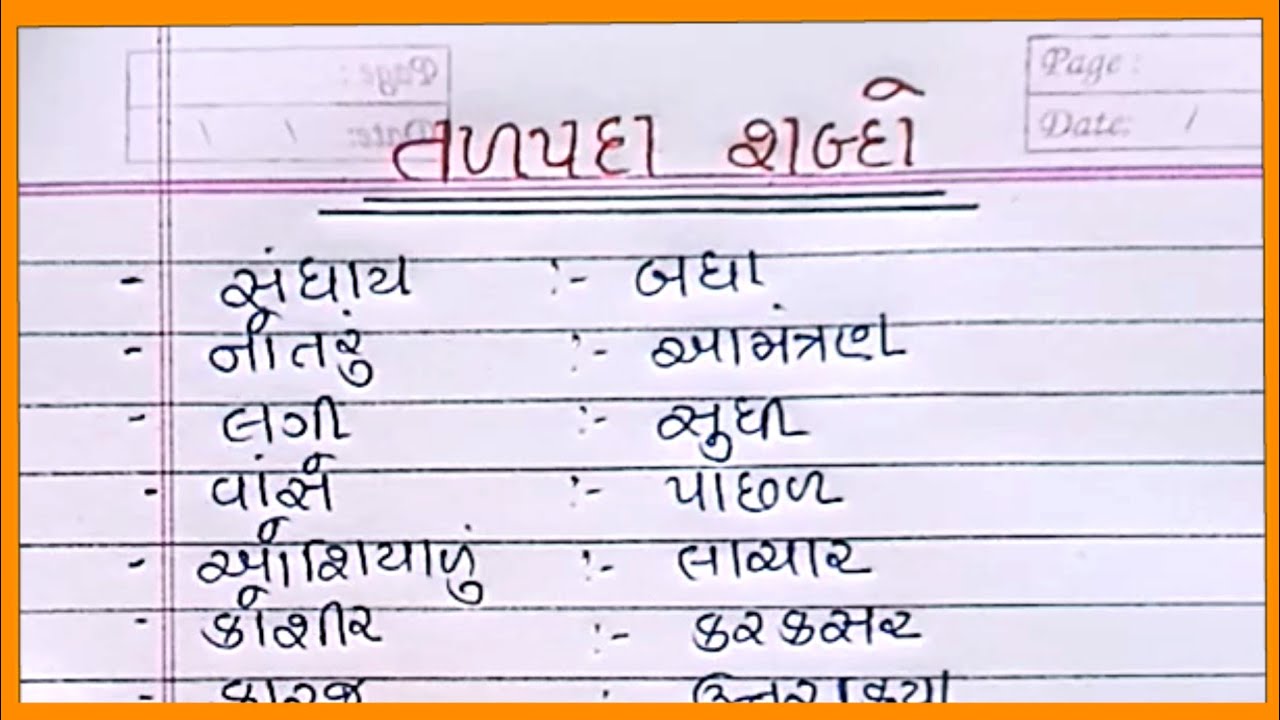 Page :
Date: /
તળપદા શબ્દો
- સંધાય :- બધા
- નોતરું :- આમંત્રણ
- લગી :- સુધી
- વાંસે :- પાછળ
- ઓશિયાળું :- લાચાર
- કોશીર :- કરકસર
- કારજ : ઉત્તરક્રિયા